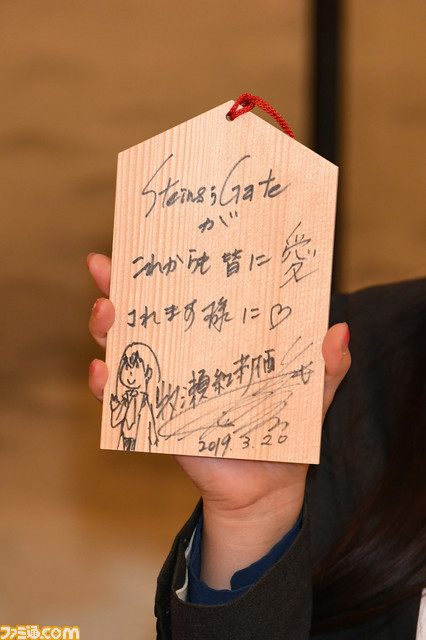 Steins;Gate
が
これからも 皆に 愛
されます様に♡
牧瀬紅莉栖
2019.3.20
ファミ通.com